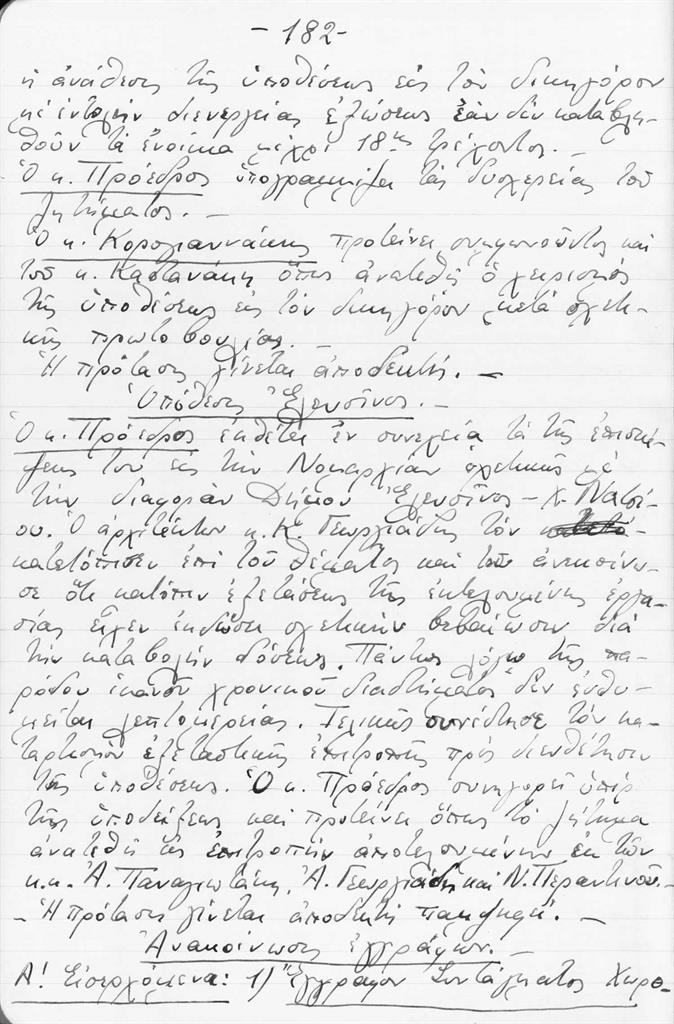 - 182 -
ἡ ἀνάθεσις τῆς ὑποθέσεως εἰς τὸν δικηγόρον
μὲ ἐντολὴν διενεργείας ἐξώσεως ἐὰν δὲν καταβλη-
θοῦν τὰ ἐνοίκια μέχρι 18ης τρέχοντος. -
Ὁ κ. Πρόεδρος ὑπογραμμίζει τὰς δυσχερείας τοῦ
ζητήματος. -
Ὁ κ. Κορογιαννάκης προτείνει συμφωνοῦντος καὶ
τοῦ κ. Καστανάκη ὅπως ἀνατεθῇ ὁ χειρισμὸς
τῆς ὑποθέσεως εἰς τὸν δικηγόρον μετὰ σχετι-
κῆς πρωτοβουλίας. -
Ἡ πρότασις γίνεται ἀποδεκτή. -
Ὑπόθεσις Ἐλευσῖνος. -
Ὁ κ. Πρόεδρος ἐκθέτει ἐν συνεχείᾳ τὰ τῆς ἐπισκέ-
ψεως του εἰς τὴν Νομαρχίαν σχετικῶς μὲ
τὴν διαφορὰν Δήμου Ἐλευσῖνος - Χ. Νατσί-
ου. Ὁ ἀρχιτέκτων κ. Κ. Γεωργιάδης τὸν
κατετόπισεν ἐπὶ τοῦ θέματος καὶ τοῦ ἀνεκοίνω-
σε ὅτι κατόπιν ἐξετάσεως τῆς ἐκτελουμένης ἐργα-
σίας εἶχεν ἐκδώσει σχετικὴν βεβαίωσιν διὰ
τὴν καταβολὴν δόσεως. Πάντως λόγῳ τῆς πα-
ρόδου ἱκανοῦ χρονικοῦ διαστήματος δὲν ἐνθυ-
μεῖται λεπτομερείας. Τελικῶς συνέστησε τὸν κα-
ταρτισμὸν ἐξεταστικῆς ἐπιτροπῆς πρὸς διευθέτησιν
τῆς ὑποθέσεως. Ὁ κ. Πρόεδρος συνηγορεῖ ὑπὲρ
τῆς ὑποδείξεως καὶ προτείνει ὅπως τὸ ζήτημα
ἀνατεθῇ εἰς ἐπιτροπὴν ἀποτελουμένην ἐκ τῶν
κ.κ. Ἀ. Παναγιωτάκη, Ἀ. Γεωργιάδη καὶ Ν. Περαντινοῦ. -
- Ἡ πρότασις γίνεται ἀποδεκτὴ παμψηφεί. -
Ἀνακοίνωσις ἐγγράφων. -
Α! Εἰσερχόμενα: 1) Ἔγγραφον Συντάγματος Χωρο-